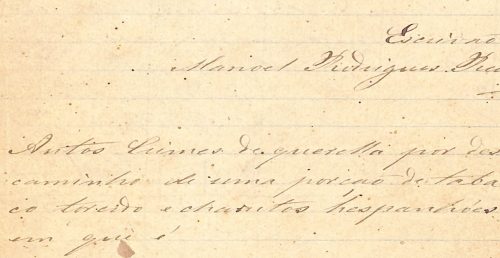 Escrivão
Manoel Rodrigues
Autos Crimes de querella por des
caminho de uma porção de taba
co torcido e charutos hespanhóes
em que é